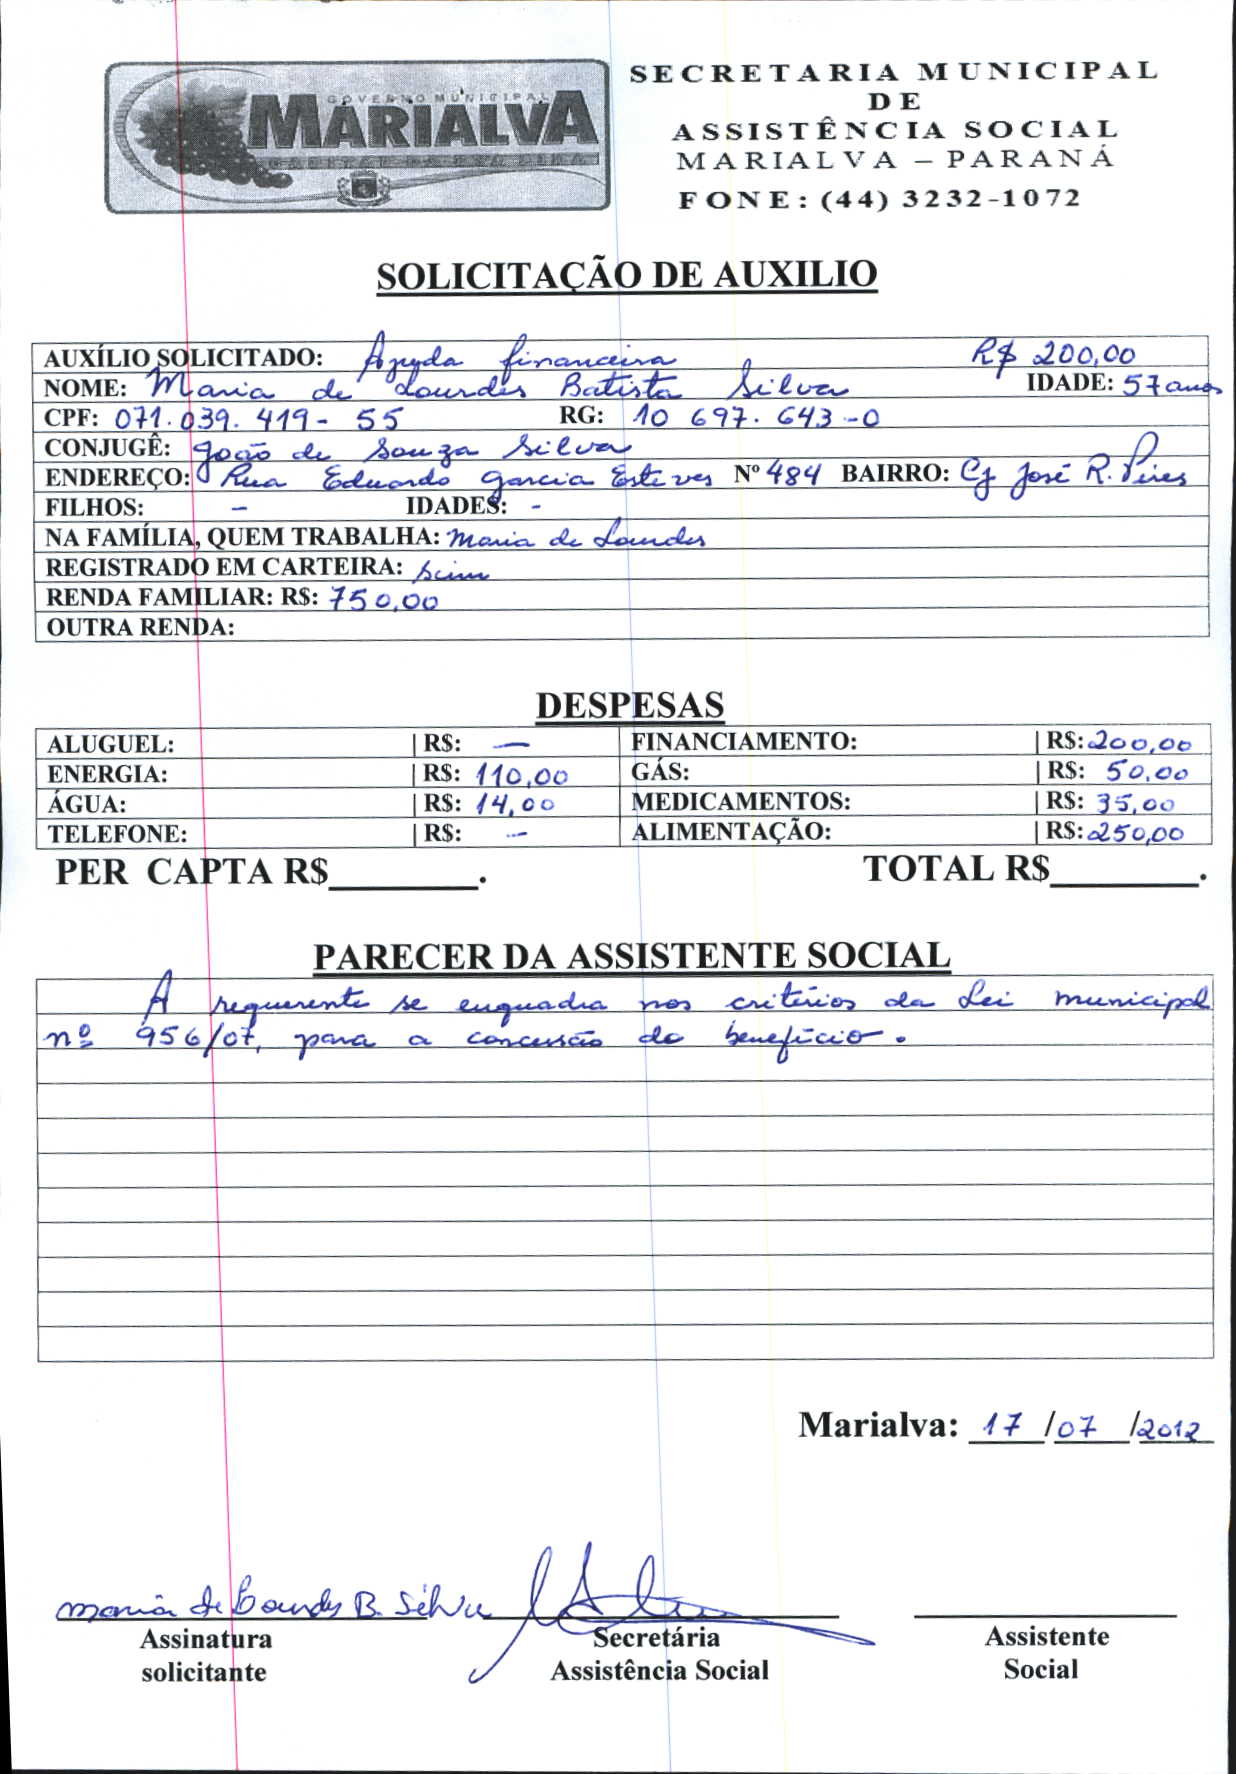 GOVERNO MUNICIPAL
MARIALVA
CAPITAL DA UVA FINA
SECRETARIA MUNICIPAL
DE
ASSISTÊNCIA SOCIAL
MARIALVA – PARANÁ
FONE: (44) 3232-1072
SOLICITAÇÃO DE AUXILIO
AUXÍLIO SOLICITADO: Ajuda financeira R$ 200,00
NOME: Maria de Lourdes Batista Silva IDADE: 57 anos
CPF: 071.039.419-55 RG: 10 697.643-0
CONJUGÊ: João de Souza Silva
ENDEREÇO: Rua Eduardo Garcia Esteves Nº 484 BAIRRO: Cj José R. Pires
FILHOS: - IDADES: -
NA FAMÍLIA, QUEM TRABALHA: Maria de Lourdes
REGISTRADO EM CARTEIRA: sim
RENDA FAMILIAR: R$: 750,00
OUTRA RENDA:
DESPESAS
ALUGUEL: | R$: — FINANCIAMENTO: | R$: 200,00
ENERGIA: | R$: 110,00 GÁS: | R$: 50,00
ÁGUA: | R$: 14,00 MEDICAMENTOS: | R$: 35,00
TELEFONE: | R$: - ALIMENTAÇÃO: | R$: 250,00
PER CAPTA R$________. TOTAL R$________.
PARECER DA ASSISTENTE SOCIAL
A requerente se enquadra nos critérios da Lei municipal
nº 956/07, para a concessão do benefício.
Marialva: 17/07/2012
Maria de Lourdes B. Silva
Assinatura Secretária Assistente
solicitante Assistência Social Social